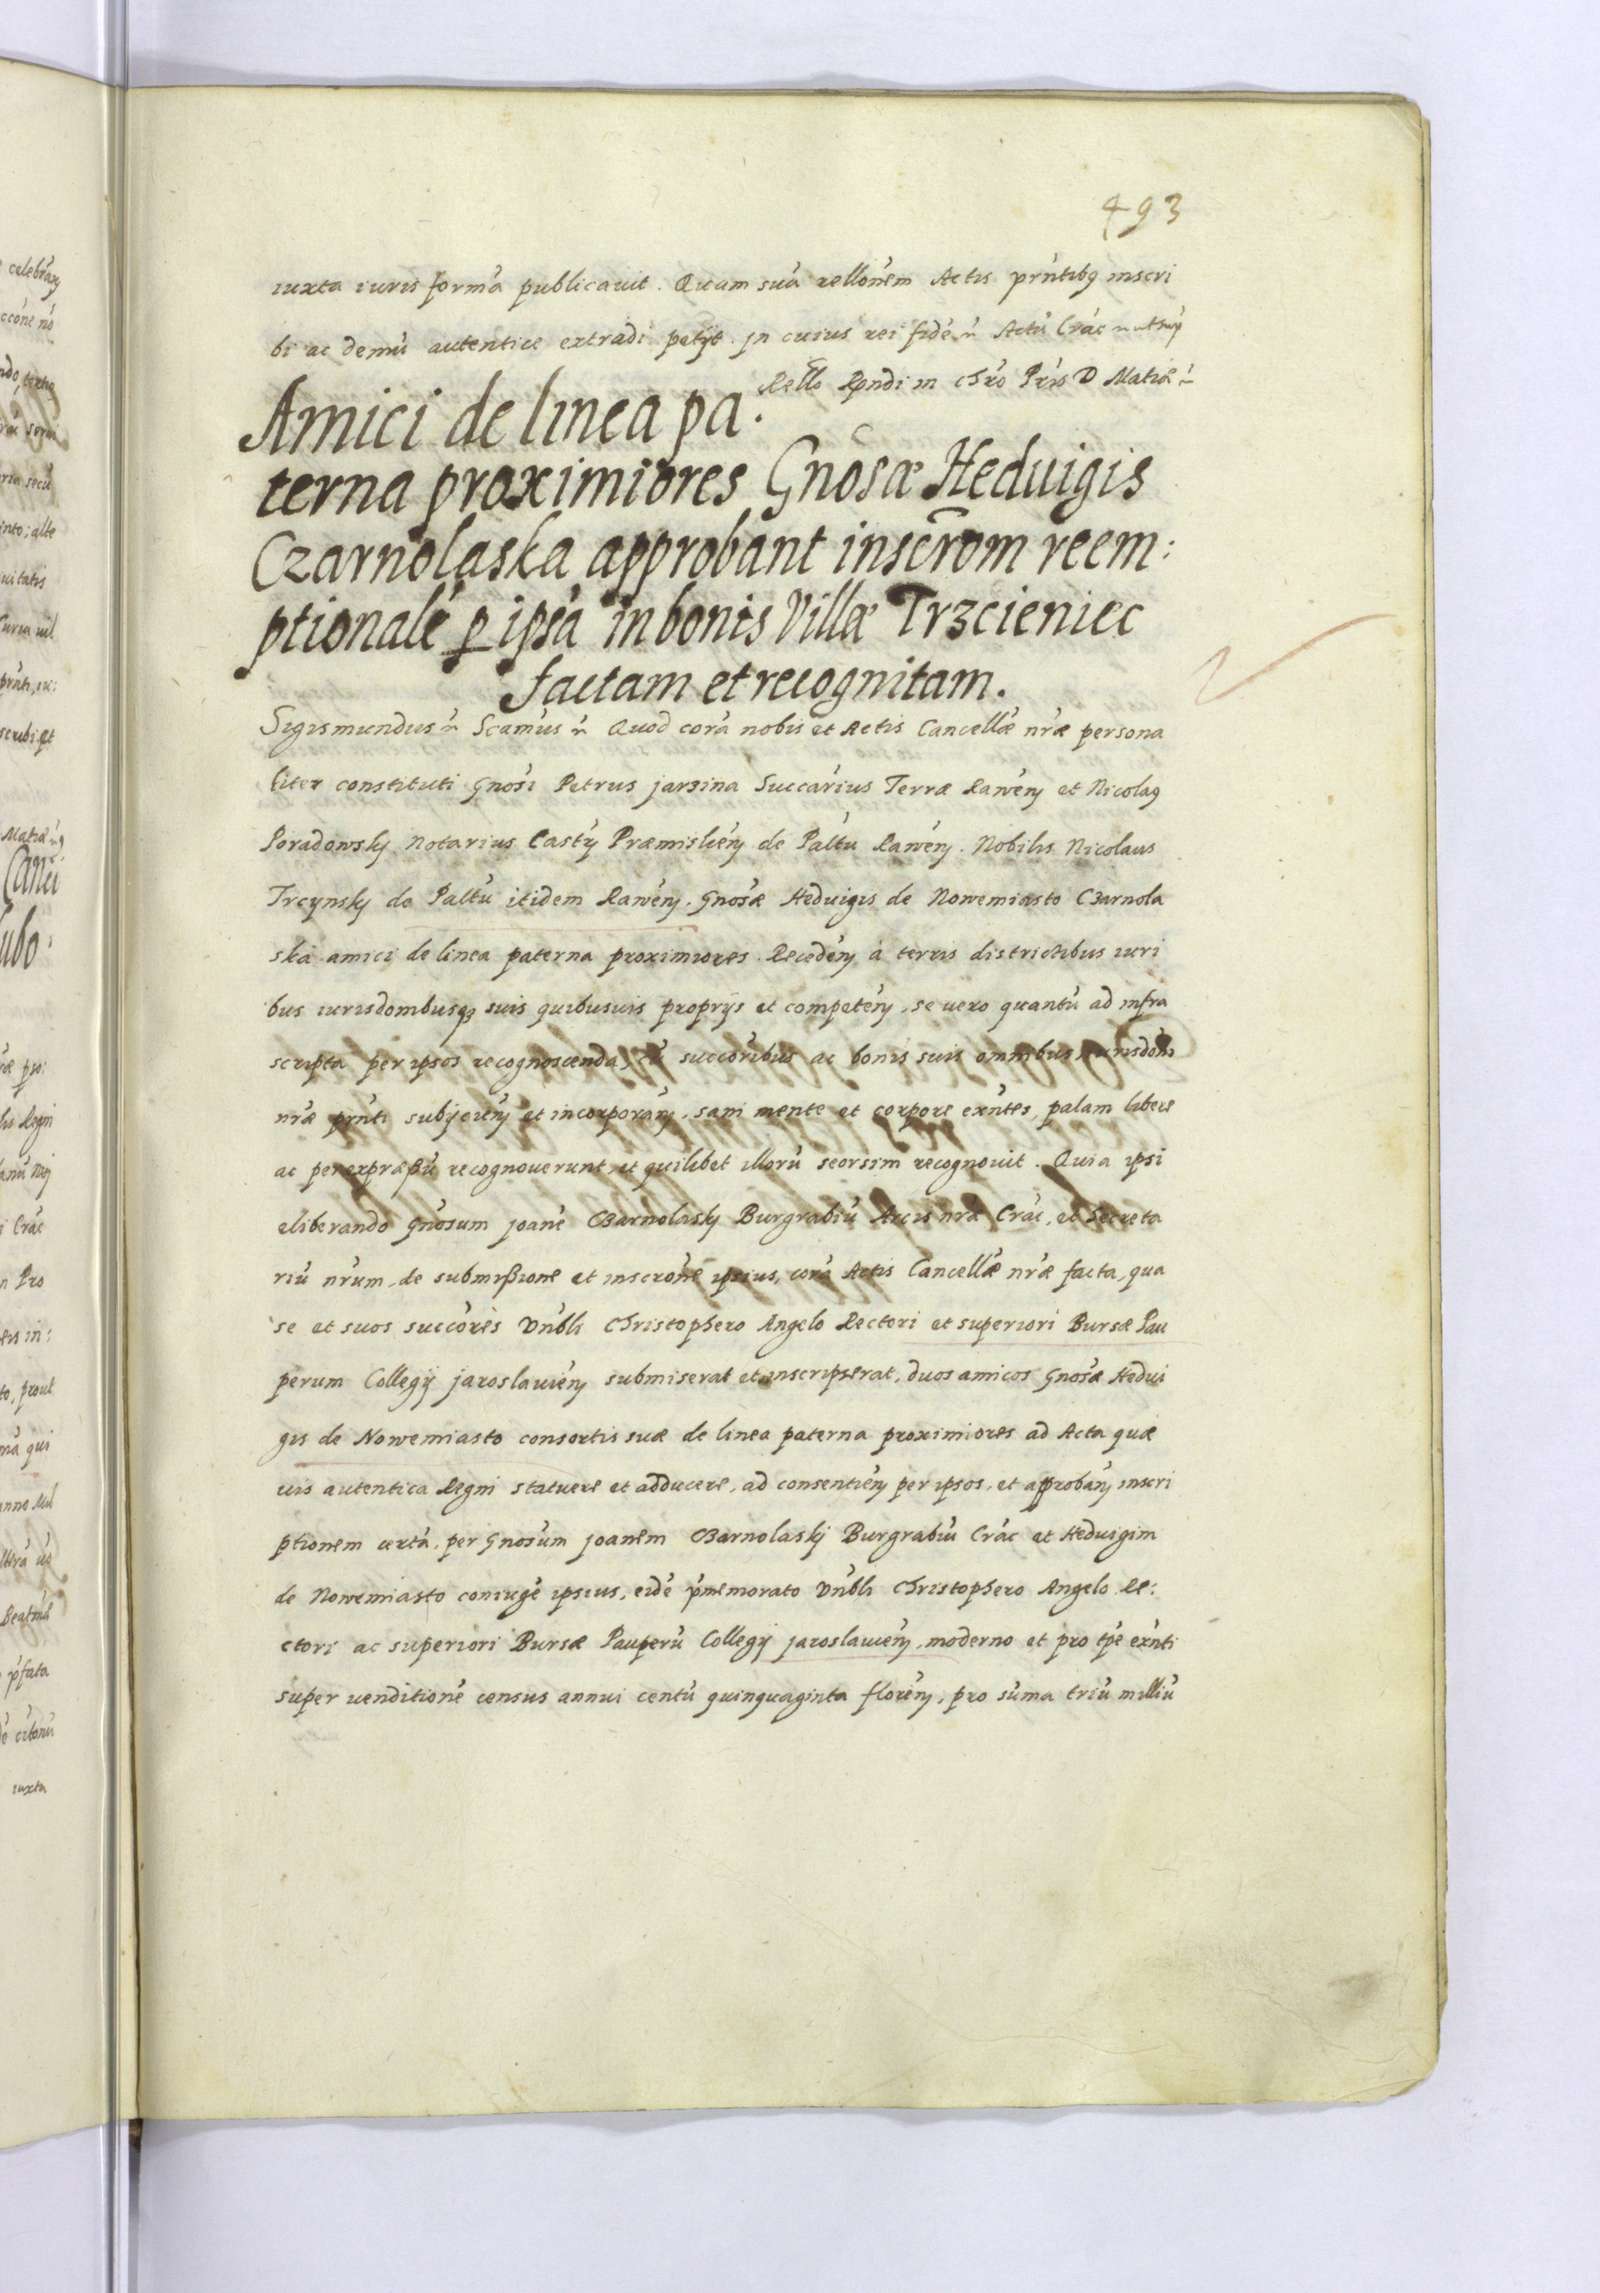 493
iuxta iuris formā publicavit. Quam suā rellōnem Actis prn̄tibꝫ inscri
bi ac demū autentice extradi petijt. Jn cuius rei fidē Actū Crac̄ ut sup̄
Rello Rṇdi in Chrō Prīs D Matiæ
Amici de linea pa:
terna proximiores Gnōsæ Heduigis
Czarnolaska approbant inscrōm reem:
ptionalē ꝑ ipsā in bonis Villæ Trzcieniec
factam et recognitam.
Sigismundus Scām̄us Quod corā nobis et Actis Cancellæ nræ persona
liter constituti Gnōsi Petrus Jarzina Succar̄ius Terræ Rawēn̄ et Nicolaꝫ
Poradowskj Notarius Castrn̄ Præmislien̄ de Pal̄tu Rawen̄. Nobilis Nicolaus
Trcynskj de Pal̄tu itidem Rawen̄. Gnōsæ Heduigis de Nowemiasto Czarnola
ska amici de linea paterna proximiores. Recedēn̄ à terris districtibus iuri
bus iurisdōnibusqꝫ suis quibusuis proprijs et competēn̄, se vero quantū ad infra
scripta per ipsos recognoscenda, cū succōribus ac bonis suis omnibus, iurisdōni
nræ prn̄ti subijcien̄ et incorporān̄. sani mente et corpore exn̄tes, palam libere
ac per expræßū recognouerunt et quilibet illorū seorsim recognouit. Quia ipsi
eliberando Gnōsum Joanē Czarnolaskj Burgrabiū Arcis nræ Crac̄, et Secreta
riū nr̄um, de submißione et inscrōne ipsius, corā Actis Cancellæ nræ facta, qua
se et suos succōres Vn̄bli Christophero Angelo Rectori et superiori Bursæ Pau
perum Collegij Jaroslauien̄ submiserat et inscripserat, duos amicos Gnōsæ Hedui
gis de Nowemiasto consortis suæ de linea paterna proximiores ad Acta quæ
vis autentica Regni statuere et adducere, ad consentien̄ per ipsos, et approban̄ inscri
ptionem certā, per Gnōsum Joanem Czarnolaskj Burgrabiū Crac̄ et Heduigim
de Nowemiasto coniugē ipsius, eidē p̄memorato Vn̄bli Christophero Angelo Re:
ctori ac superiori Bursæ Pauperū Collegij Jaroslauien̄, moderno et pro tp̄e exn̄ti
super venditionē census annui centū quinquaginta floren̄, pro sum̄a triū milliū